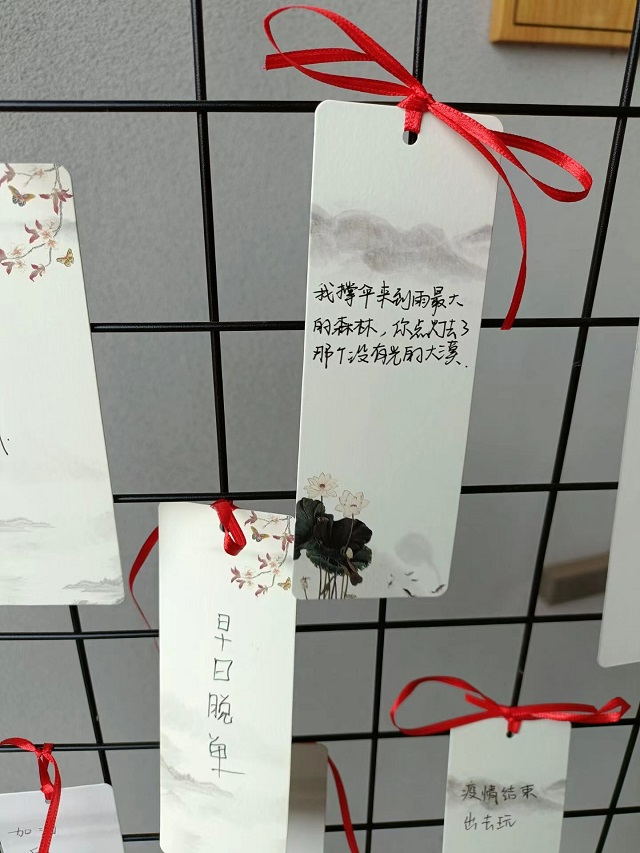 我撑伞来到雨最大
的森林,你点灯去了
那个没有光的大漠.
早日脱单
疫情结束
出去玩
加